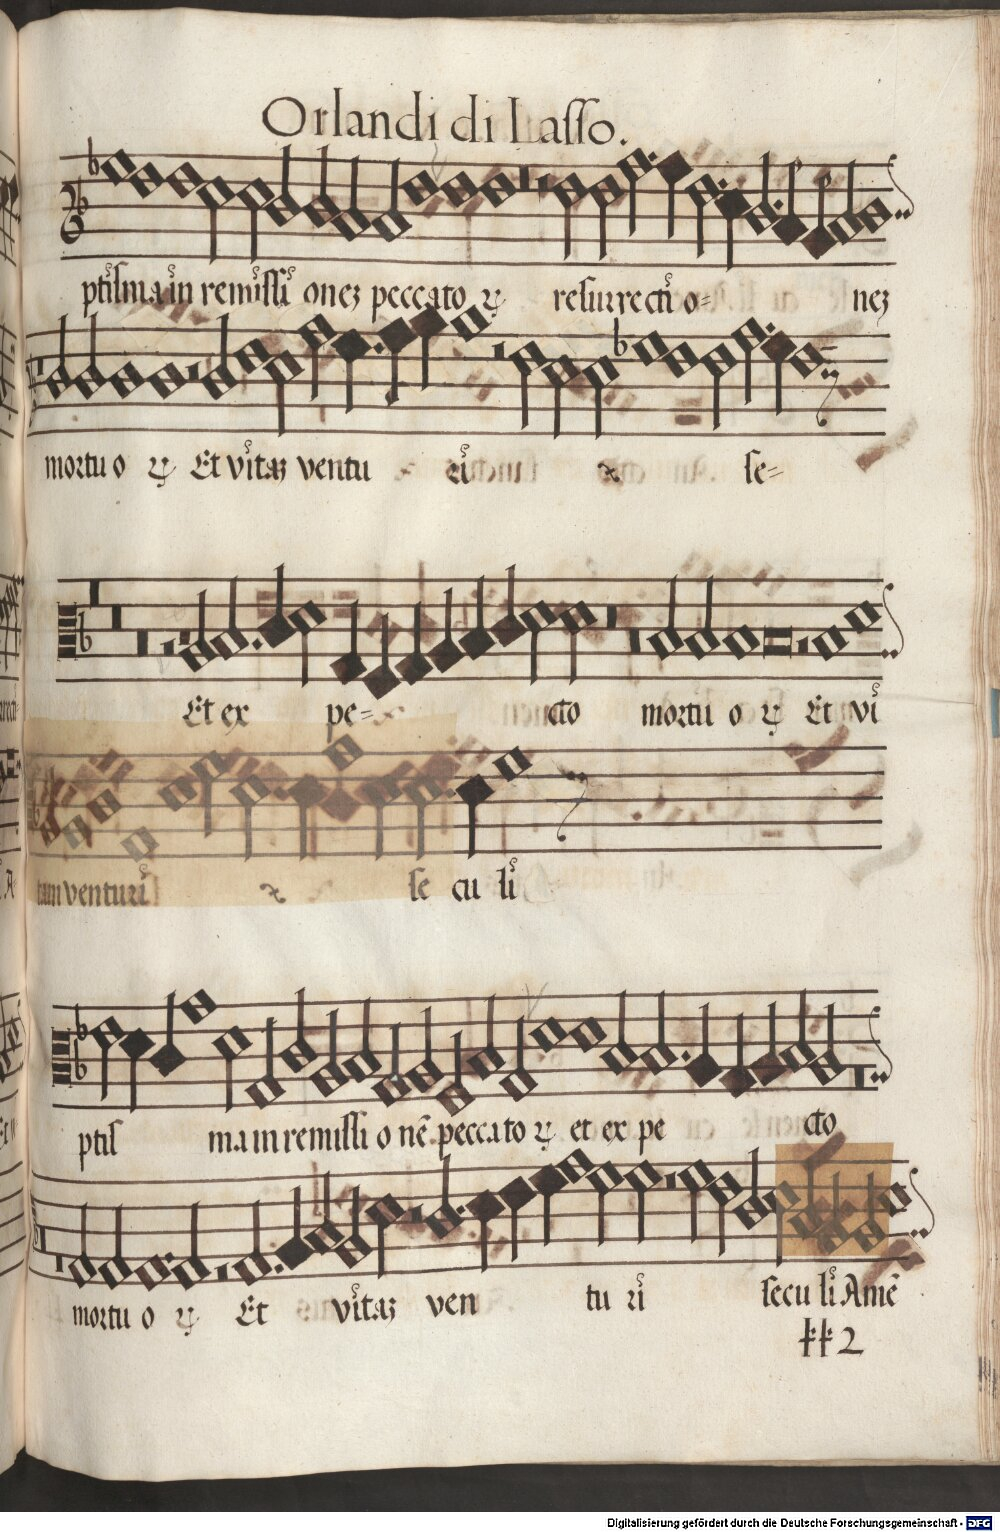 Orlandi di Lasso.
ptisma in remissi onez peccato ꝝ resurrecti o= nez
mortu o ꝝ Et vitaz ventu ri se=
Et ex pe= cto mortu o ꝝ Et vi
tam venturi se cu li
ptis ma in remissi o nē peccato ꝝ et ex pe cto
mortu o ꝝ Et vitaz ven tu ri secu li Amē
kk 2
Digitalisierung gefördert durch die Deutsche Forschungsgemeinschaft - DFG